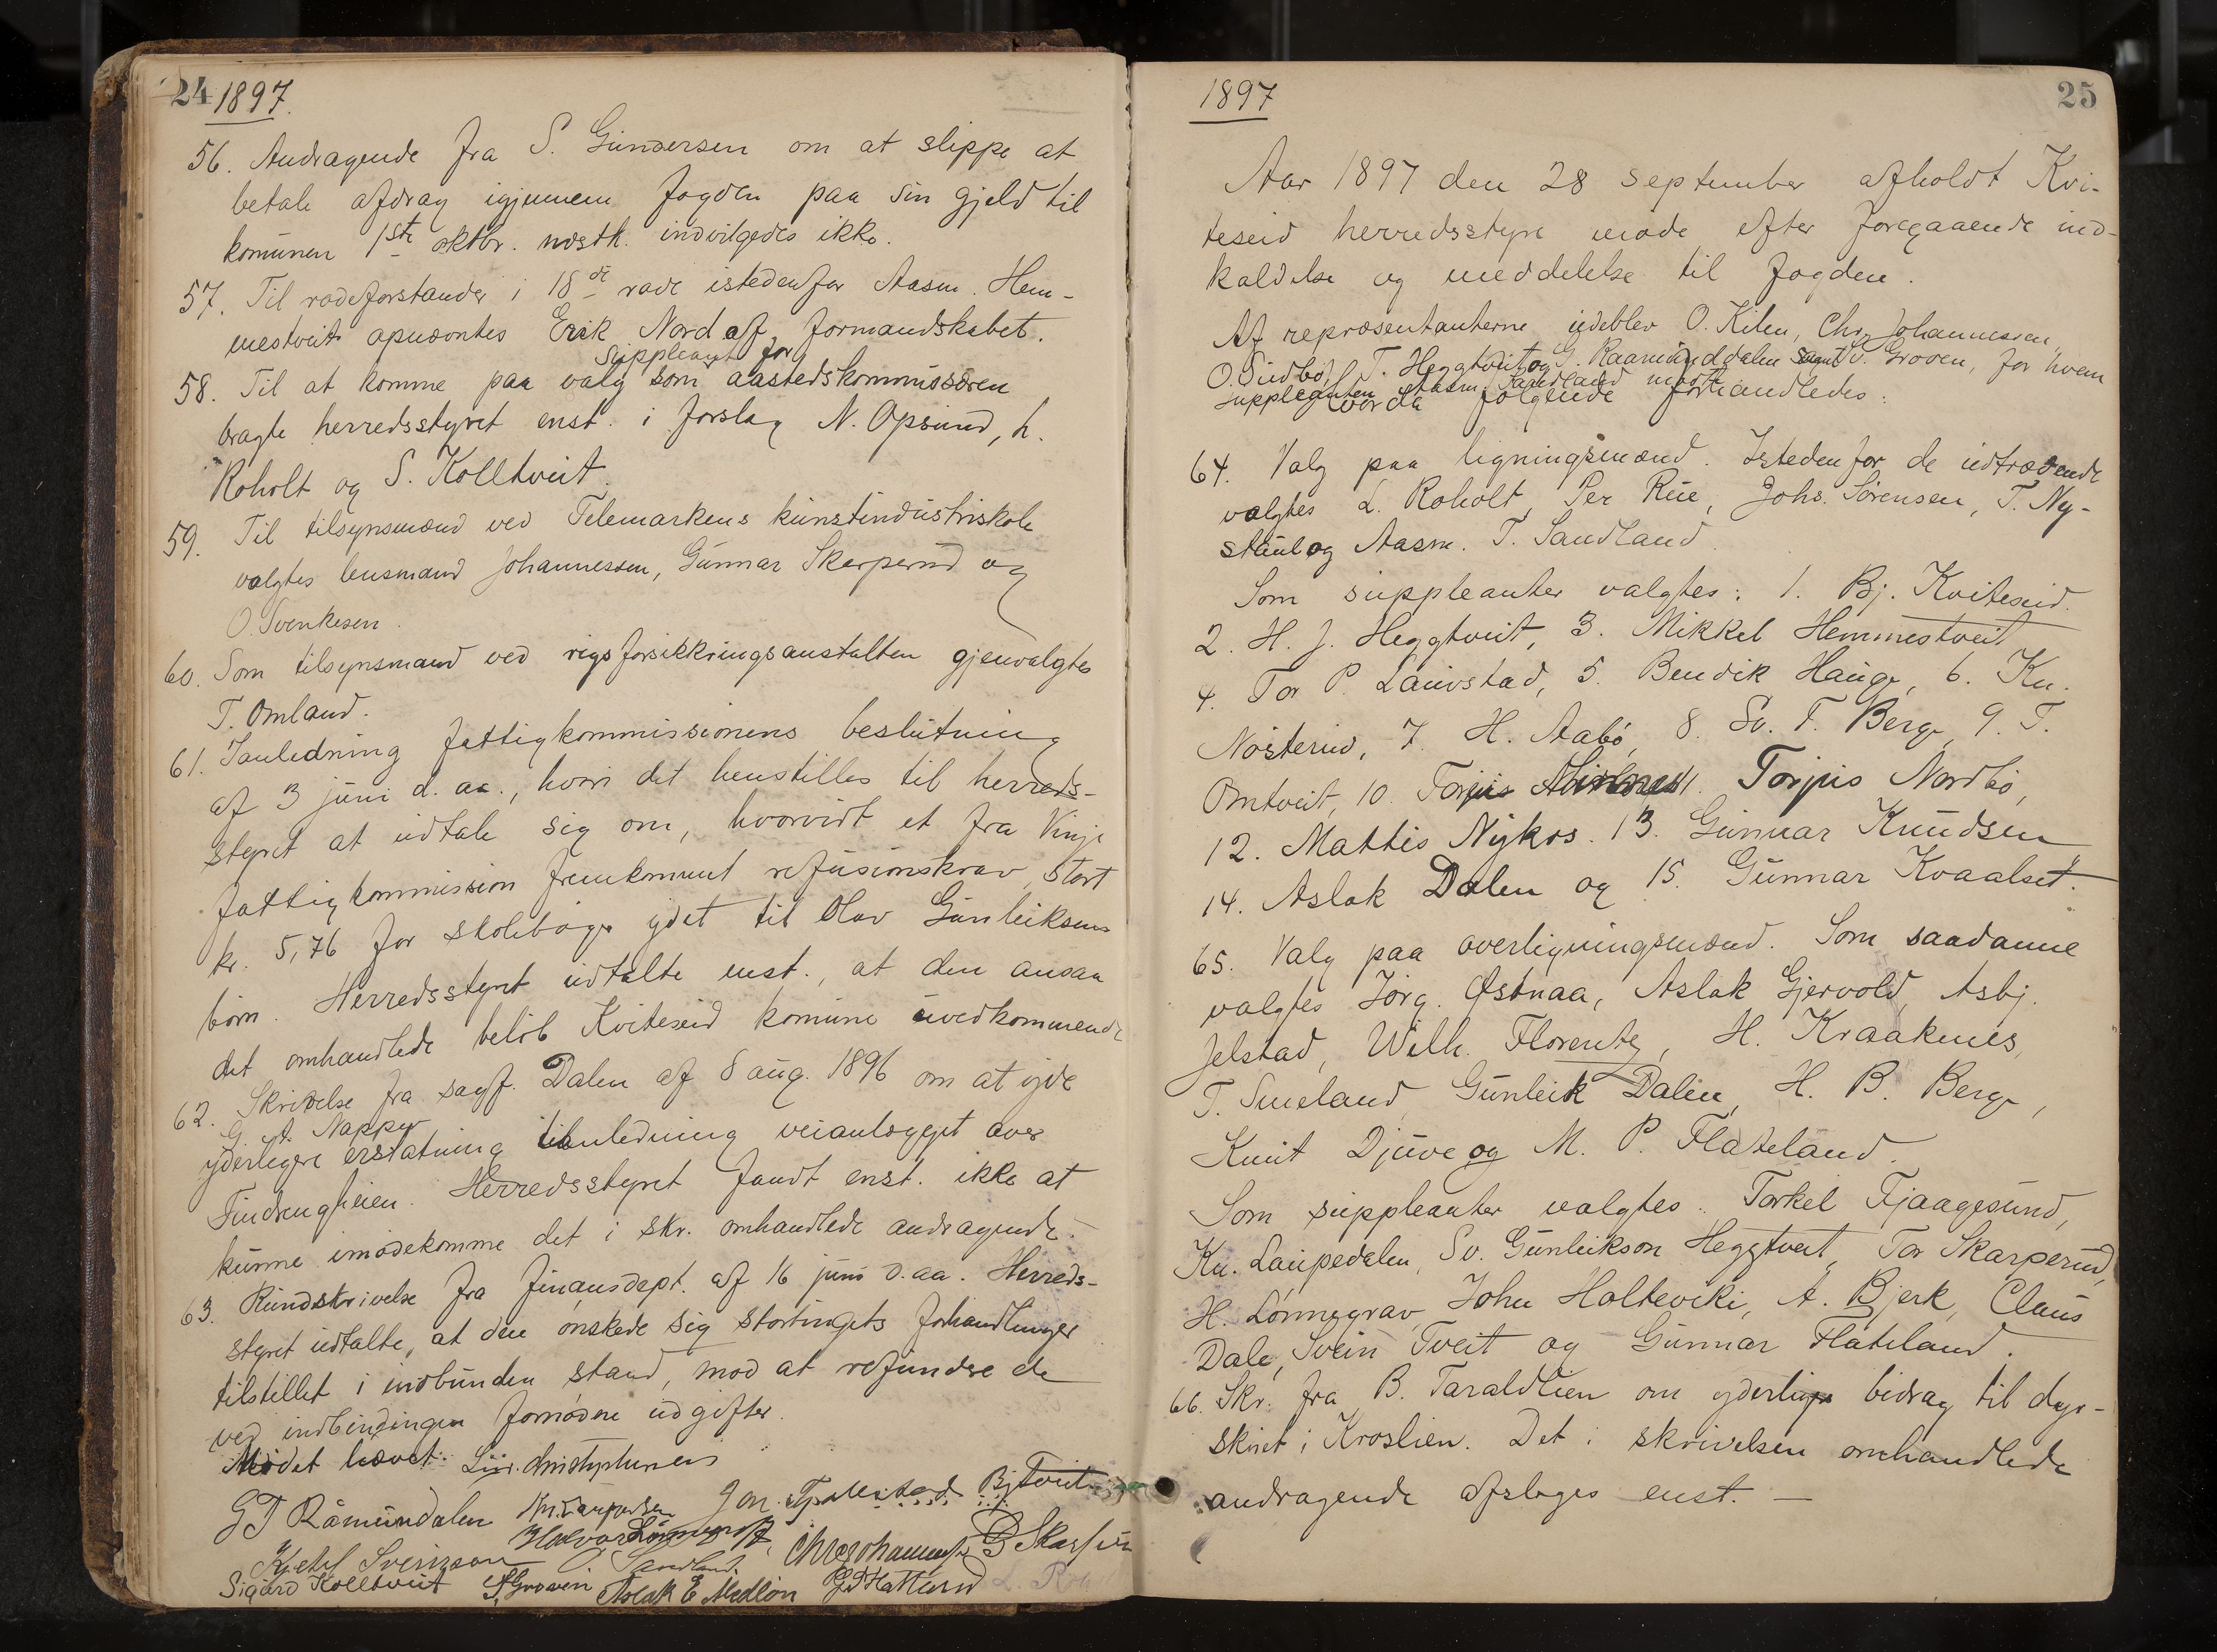 24 1897.
56. Andragende fra S. Gundersen om at slippe at
betale afdrag igjennem fogden paa sin gjeld til
komunen 1ste oktbr. næstk. indvilgedes ikke.
57. Til rodeforstander i 18de rode istedenfor Aasm. Hem-
mestveit opnævntes Erik Nord af formandskabet.
suppleant for
58. Til at komme paa valg som aastedskommissæren
bragte herredsstyret enst. i forslag N. Opsund, L.
Roholt og S. Kolltveit.
59. Til tilsynsmænd ved Telemarkens kunstindustriskole
valgtes lensmand Johannessen, Gunnar Skarperud og
O. Svenkesen.
60. Som tilsynsmand ved rigsforsikkringsanstalten gjenvalgtes
T. Omland.
61. I anledning fattigkommissionens beslutning
af 3 juni d. aa., hvori det henstilles til herreds-
styret at udtale sig om, hvorvidt et fra Vinje
fattigkommission fremkommet refusionskrav stort
kr. 5,76 for skolebøger ydet til Olav Gunleiksens
børn. Herredsstyret udtalte enst., at den ansaa
det omhandlede beløb Kviteseid komune uvedkommende
62. Skrivelse fra sagf. Dalen af 8 aug. 1896 om at yde
G. A. Napper
yderligere erstatning i anledning veianlægget over
Findrengheien. Herredsstyret fandt enst. ikke at
kunne imødekomme det i skr. omhandlede andragende.
63. Rundskrivelse fra finansdept. af 16 juni d. aa. Herreds-
styret udtalte, at den ønskede sig stortingets forhandlinger
tilstillet i indbunden stand, mod at refundere de
ved indbindingen fornødne udgifter.
Mødet hævet.
G T Råmundalen Bj Tveit
Kjetil Sveinson O Sandland. Chr Johannessen
Sigurd Kolltveit S. Groven Aslak E Midløn
1897 25
Aar 1897 den 28 september afholdt Kvi-
teseid herredsstyre møde efter foregaaende ind-
kaldelse og meddelelse til fogden.
Af repræsentanterne udeblev O. Kilen, Chr. Johannessen,
O. Sudbø, T. Heggtveit og G. Raamunddalen samt Sv. Groven, for hvem
suppleanten Aasm. Sandland mødte.
hvorda følgende forhandledes:
64. Valg paa ligningsmænd. Istedenfor de udtrædende
valgtes L. Roholt, Per Rue, Johs. Sørensen, T. Ny-
staul og Aasm. T. Sandland.
Som suppleanter valgtes: 1. Bj. Kviteseid.
2. H. J. Heggtveit, 3. Mikkel Hemmestveit
4. Tor P. Lauvstad, 5. Bendik Hauge, 6. Kn.
Nøsterud, 7. H. Aabø, 8. Sv. T. Berge, 9. T.
Omtveit, 10. Torjus 11. Torjus Nordbø,
12. Mattis Nykos. 13. Gunnar Knudsen
14. Aslak Dalen og 15. Gunnar Kvaalset.
65. Valg paa overligningsmænd. Som saadanne
valgtes Jørg. Østnaa, Aslak Gjervold, Asbj.
Jelstad, Wilh. Florentz, H. Kraaknes,
T. Smeland, Gunleik Dalen, H. B. Berge,
Knut Djuve og M. P. Flateland.
Som suppleanter valgtes: Torkel Fjaagesund,
Kn. Laupedalen, Sv. Gunleikson Heggtveit, Tor Skarperud,
H. Lønnegrav, John Holteviki, A. Bjerk, Claus
Dale, Svein Tveit og Gunnar Flateland.
66. Skr. fra B. Taraldlien om yderligere bidrag til dyr-
skuet i Kroslien. Det i skrivelsen omhandlede
andragende afsloges enst. —